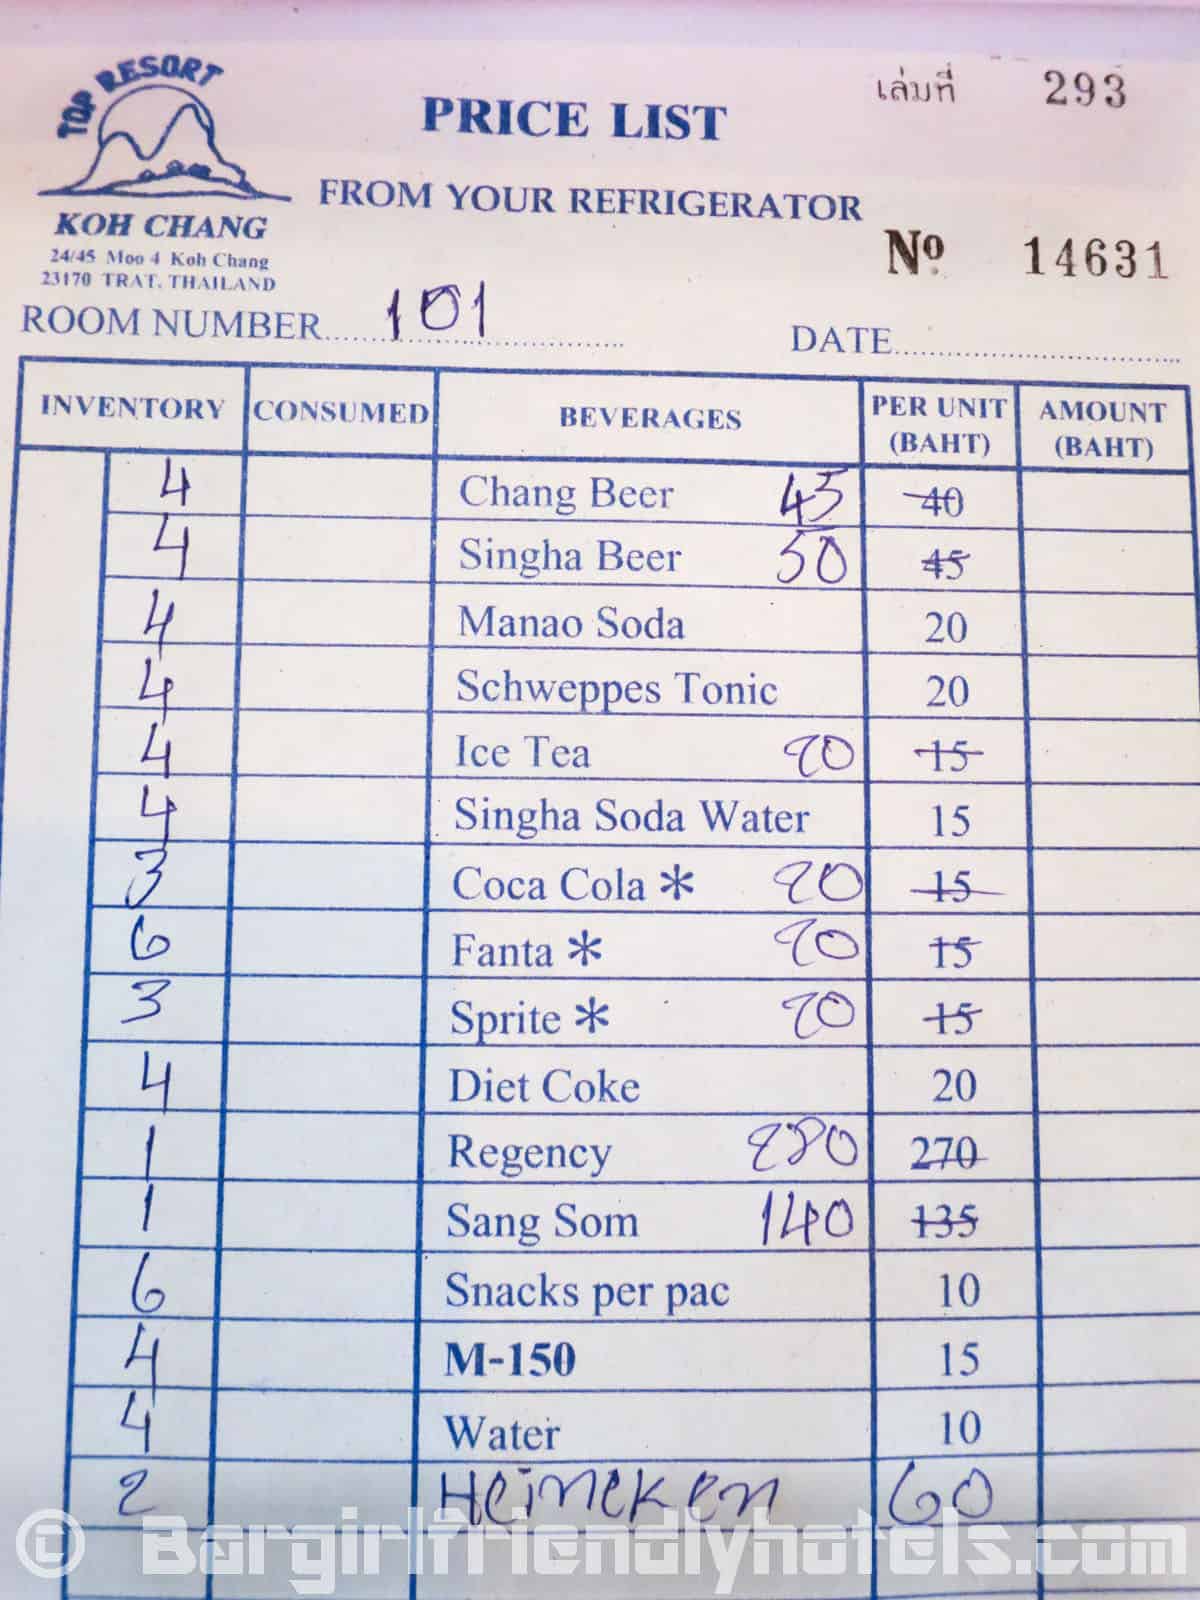 TOP RESORT
เล่มที่ 293
PRICE LIST
FROM YOUR REFRIGERATOR
KOH CHANG
24/45 Moo 4 Koh Chang
23170 TRAT. THAILAND
Nº 14631
ROOM NUMBER 101
DATE
INVENTORY CONSUMED BEVERAGES PER UNIT (BAHT) AMOUNT (BAHT)
4 Chang Beer 45 40
4 Singha Beer 50 45
4 Manao Soda 20
4 Schweppes Tonic 20
4 Ice Tea 20 15
4 Singha Soda Water 15
3 Coca Cola * 20 15
6 Fanta * 20 15
3 Sprite * 20 15
4 Diet Coke 20
1 Regency 280 270
1 Sang Som 140 135
6 Snacks per pac 10
4 M-150 15
4 Water 10
2 Heineken 60
© Bargirlfriendlyhotels.com